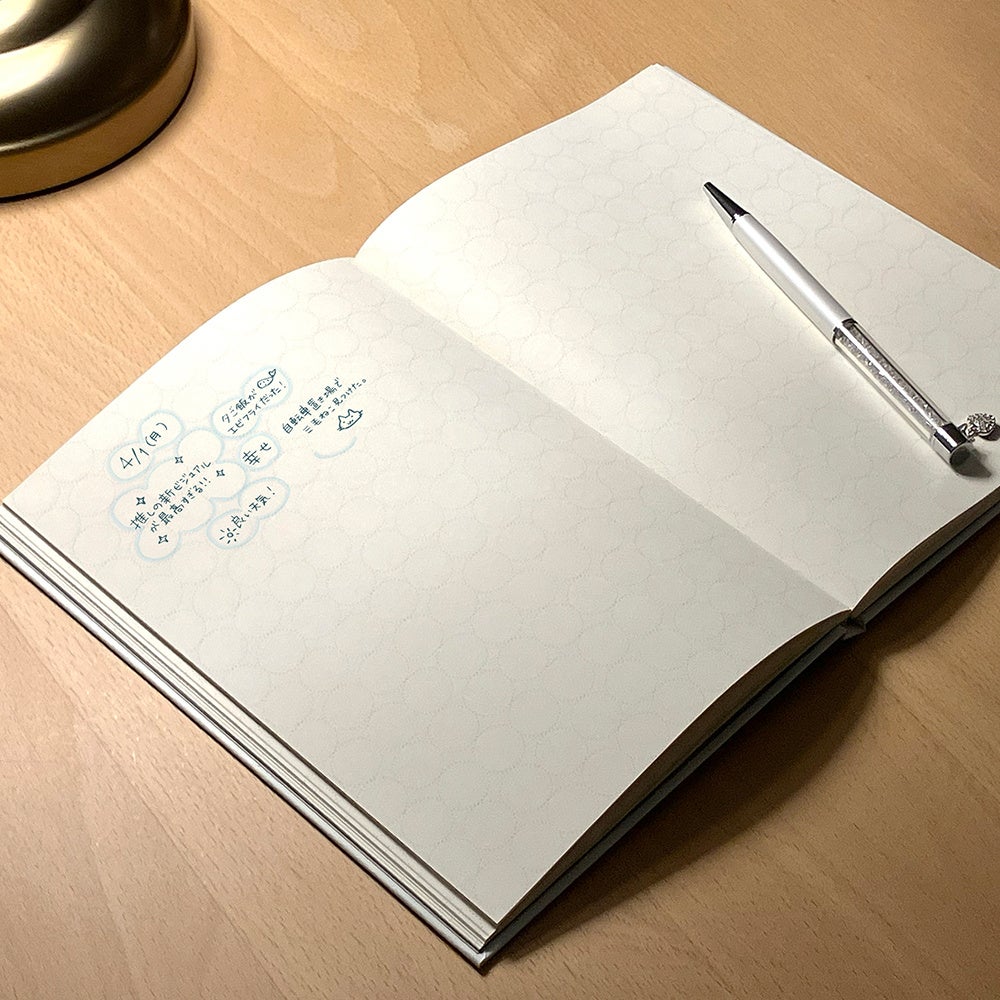 4/1(月)
推しの新ビジュアル
が最高すぎる!!
夕ご飯が
エビフライだった!
幸せ
良い天気!
自転車置き場で
三毛ねこ見つけた。